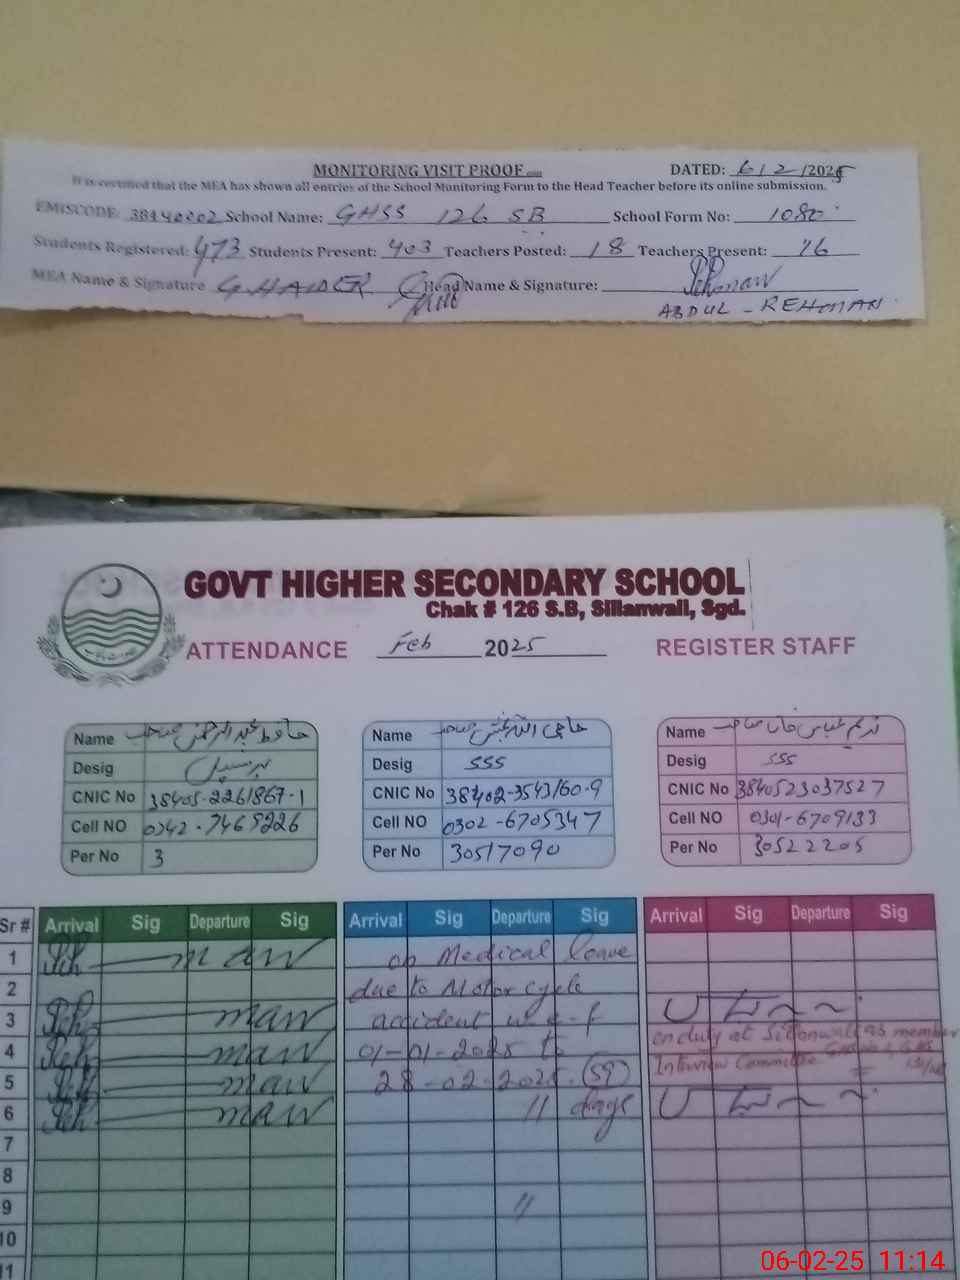 MONITORING VISIT PROOF
DATED: 6/2/2025
It is certified that the MEA has shown all entries of the School Monitoring Form to the Head Teacher before its online submission.
EMISCODE: 38440002 School Name: GHSS 126 SB School Form No: 1080
Students Registered: 473 Students Present: 403 Teachers Posted: 18 Teachers Present: 16
MEA Name & Signature G.HAIDER Head Name & Signature:
ABDUL - REHMAN
GOVT HIGHER SECONDARY SCHOOL
Chak # 126 S.B, Sillanwali, Sgd.
ATTENDANCE Feb 2025 REGISTER STAFF
Name حافظ عبدالرحمن صاحب Name حاجی اللہ بخش صاحب Name ندیم عباس خان صاحب
Desig پرنسپل Desig SSS Desig SSS
CNIC No 38405-2261867-1 CNIC No 38402-3543160-9 CNIC No 3840523037527
Cell NO 0342-7468226 Cell NO 0302-6705347 Cell NO 0301-6709133
Per No 3 Per No 30517090 Per No 30522205
Sr # Arrival Sig Departure Sig Arrival Sig Departure Sig Arrival Sig Departure Sig
1 on Medical leave
2 due to Motorcycle
3 accident w-e-f
4 01-01-2025 to on duty at Silanwali as member
5 28-02-2025 (59) Interview Committee
6 // days
7
8
9 //
10
11
06-02-25 11:14